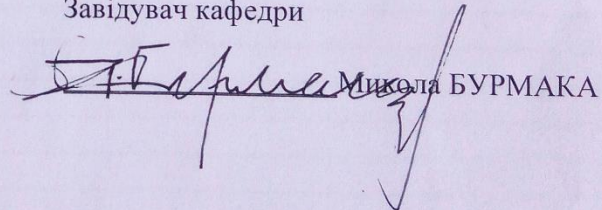 Завідувач кафедри
Микола БУРМАКА